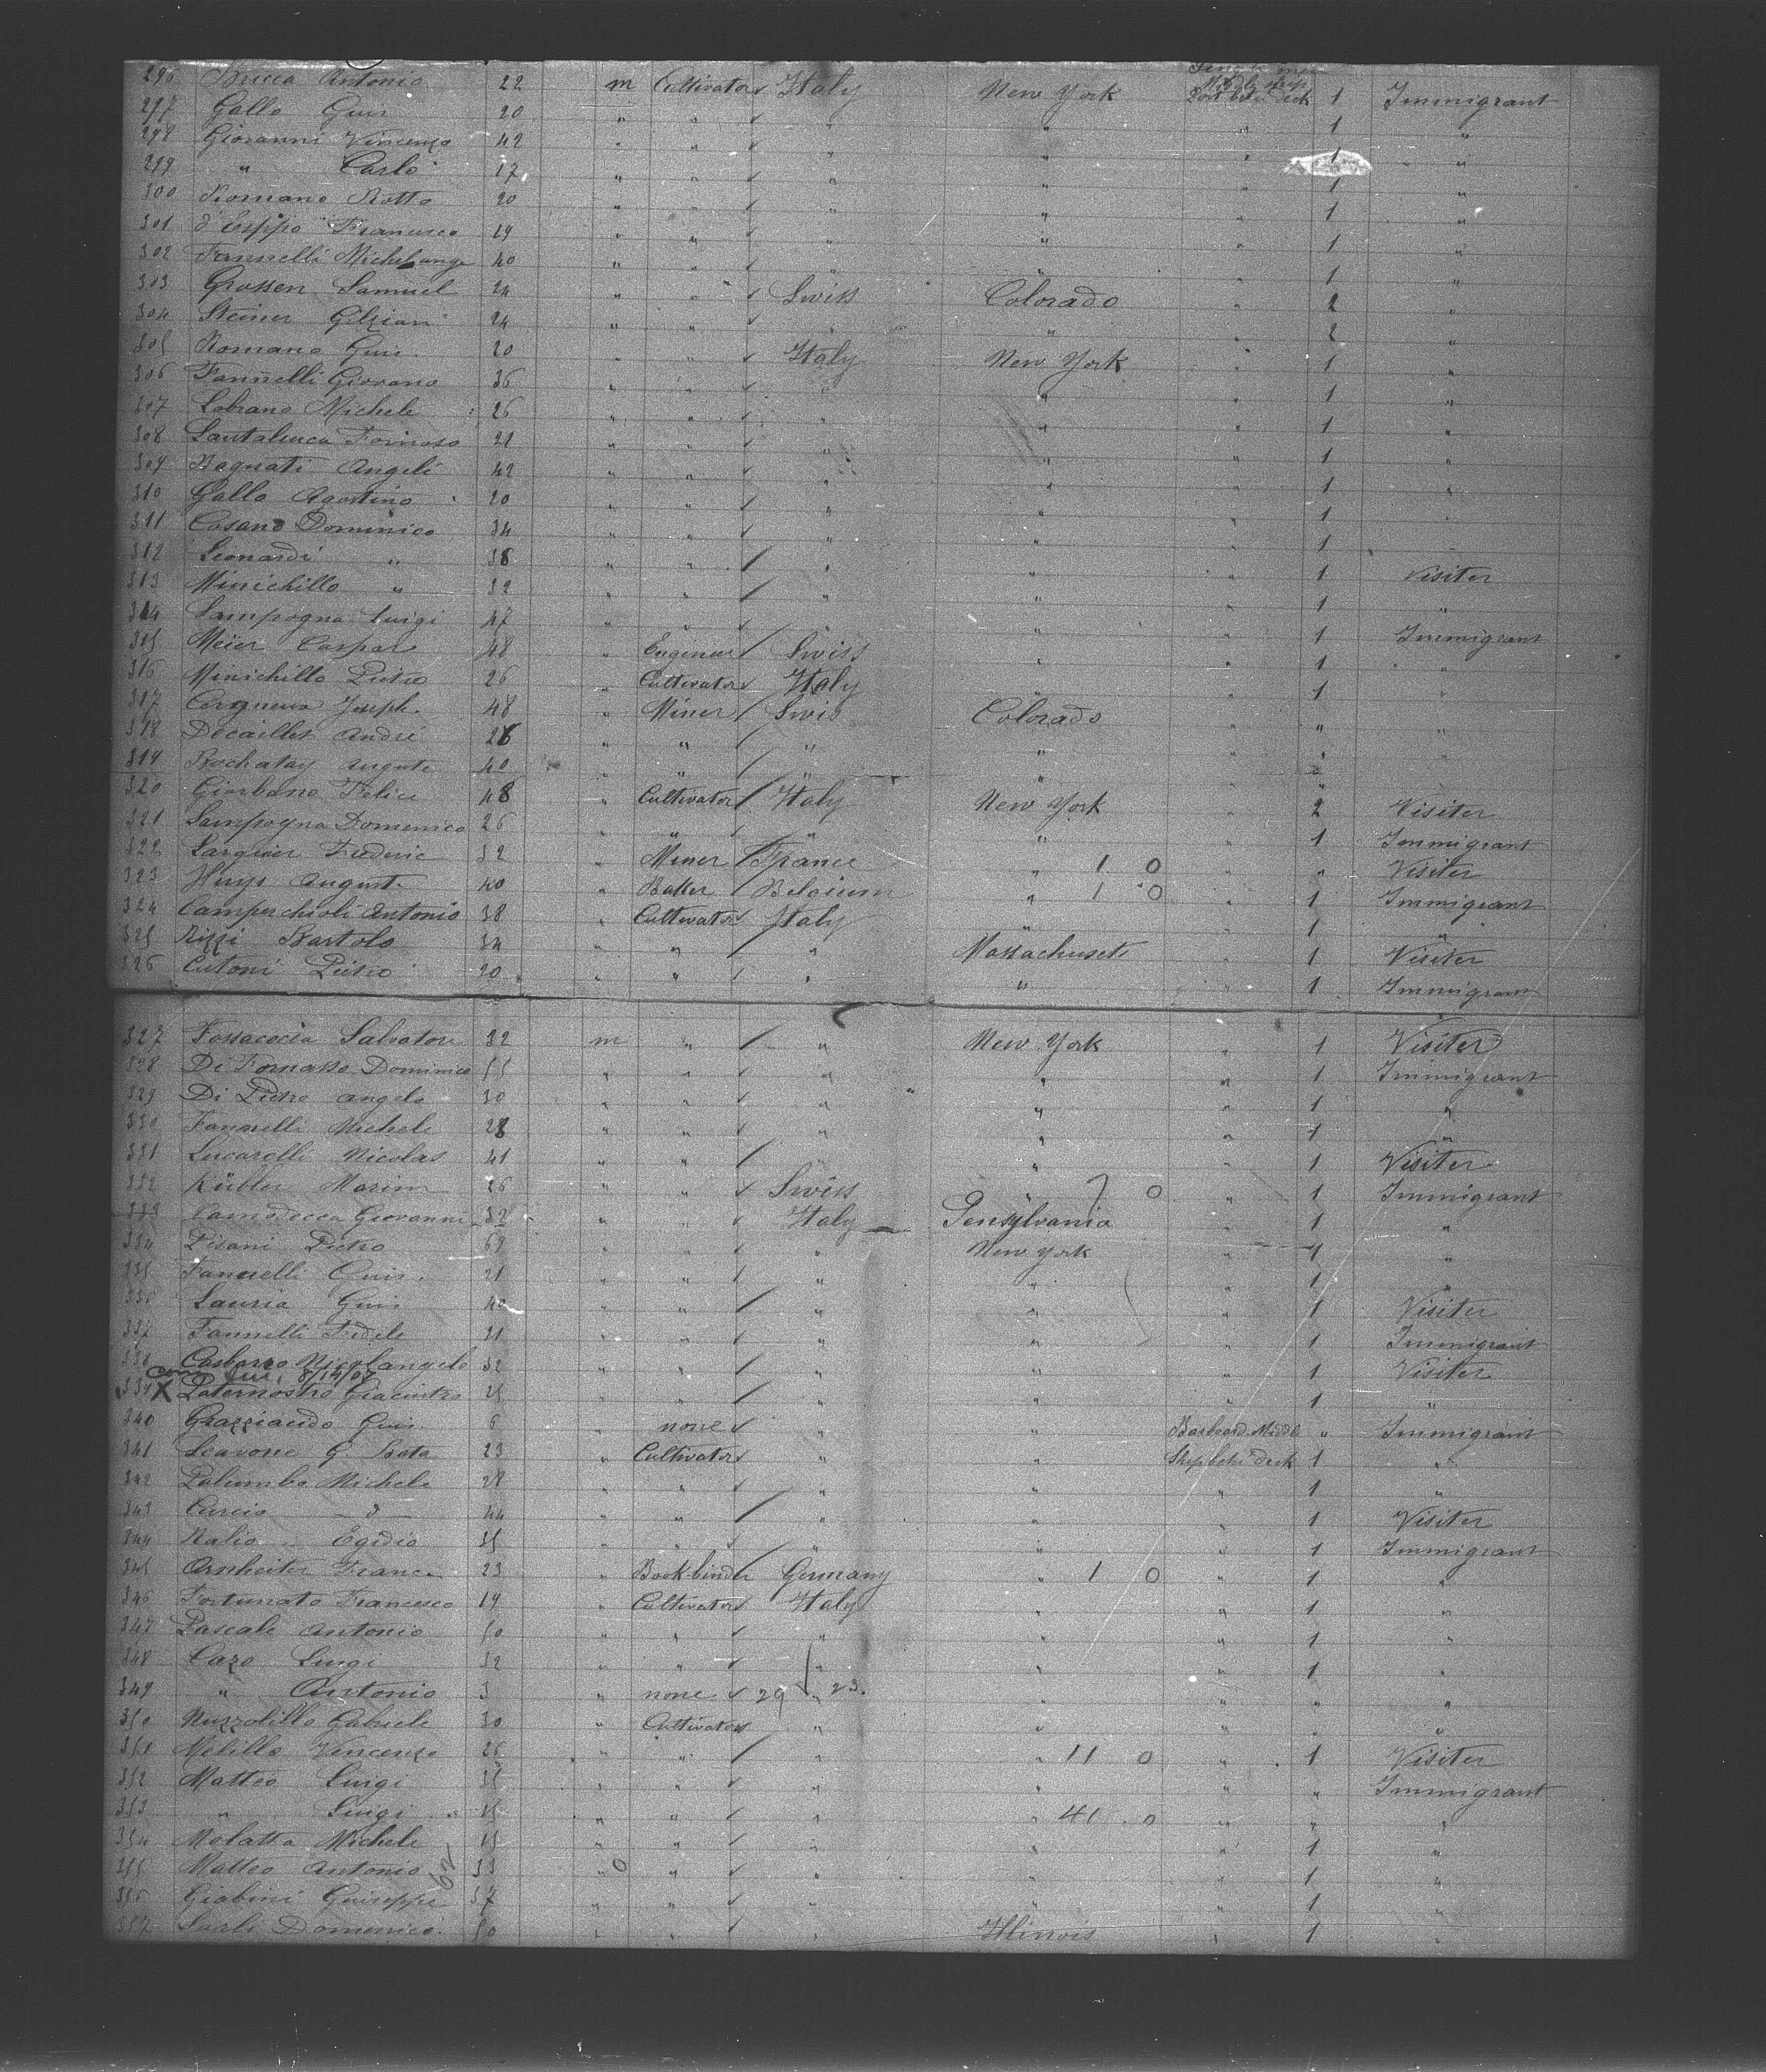 296 Bucca Antonio 22 m Cultivator Italy New York Port betw deck 1 Immigrant
297 Gallo Guis 20 " " " " " 1 "
298 Giovanni Vincenzo 42 " " " " " 1 "
299 " Carlo 17 " " " " " 1 "
300 Romano Rotto 20 " " " " " 1 "
301 Francesco 29 " " " " " 1 "
302 Fannelli Michelange 40 " " " " " 1 "
303 Grossen Samuel 24 " " Swiss Colorado " 2 "
304 Steiner 24 " " " " " 2 "
305 Romano Guis. 20 " " Italy New York " 1 "
306 Fannelli Giovano 36 " " " " " 1 "
307 Lobrano Michele 26 " " " " " 1 "
308 21 " " " " " 1 "
309 Bagnati Angeli 42 " " " " " 1 "
310 Gallo Agostino 20 " " " " " 1 "
311 Cosano Dominico 34 " " " " " 1
312 Leonardi " 38 " " " " " 1 Visiter
313 Minichillo " 32 " " " " " 1 "
314 Sampogna Luigi 47 " " " " " 1 Immigrant
315 Meier Caspar 48 " Engeneer Swiss " " 1 "
316 Minichillo Pietro 26 " Cultivator Italy " " 1 "
317 Joseph. 48 " Miner Swis Colorado " " "
318 Decaillet André 26 " " " " " " "
319 Rochatay Auguste 40 " " " " " "
320 Giordano Felice 48 " Cultivator Italy New York " 2 Visiter
321 Sampogna Domenico 26 " " " " " 1 Immigrant
322 Largier Frederic 32 " Miner France " 1 0 " " Visiter
323 Huys August 40 " Baker Belgium " 1 0 " 1 Immigrant
324 Antonio 38 " Cultivator Italy " " 1 "
325 Rizzi Bartolo 34 " " " Massachusets " 1 Visiter
326 Cutoni Pietro 20 " " " " " 1 Immigrant
327 Fossaceca Salvatore 32 m " " New York " 1 Visiter
328 Di Tomasso Dominico 55 " " " " " 1 Immigrant
329 Di Pietro Angelo 30 " " " " " 1 "
330 Fannelli Michele 28 " " " " " 1 "
331 Lucarelli Nicolas 41 " " " " " 1 Visiter
332 Kübler Marim 26 " " Swiss " 7 0 " 1 Immigrant
333 Giovanni 32 " " Italy Pensylvania " 1 "
334 Pisani Pietro 69 " " " New York " 1 "
335 Fannelli Guis. 21 " " " " " 1 "
336 Lauria Guis 40 " " " " " 1 Visiter
337 Fannelli Fidele 31 " " " " " 1 Immigrant
338 Nicolangelo 32 " " " " " 1 Visiter
8/14/07
339 X Paternostro Giacintro 25 " " " " " 1 "
340 Guis. 6 " none " " Barboard Middl " Immigrant
341 Scavone G. Bata 23 " Cultivator " " Ship betw deck 1 "
342 Palumbo Michele 28 " " " " " 1 "
343 Curcio 44 " " " " " 1 Visiter
344 Egidio 35 " " " " " 1 Immigrant
345 Arnheiter Franc 23 " Bookbinder Germany " 1 0 " 1 "
346 Fortunato Francesco 19 " Cultivator Italy " " 1 "
347 Pascale Antonio 50 " " " " " 1 "
348 Cazo Luigi 32 " " " " " 1 "
349 " Antonio 3 " none 29 " 23. " " " "
350 Nuzzolillo Gabriele 30 " Cultivator " " " " "
351 Melillo Vincenzo 26 " " " " 11 0 " 1 Visiter
352 Matteo Luigi 35 " " " " " " Immigrant
353 " Luigi 15 " " " " 41 0 " " "
354 Molatta Michele 45 " " " " " 1 "
355 Matteo Antonio 62 33 " 0 " " " " 1 "
356 Giabini Guiseppe 37 " " " " " 1 "
357 Sarli Domenico. 50 " " " Illinois " 1 "